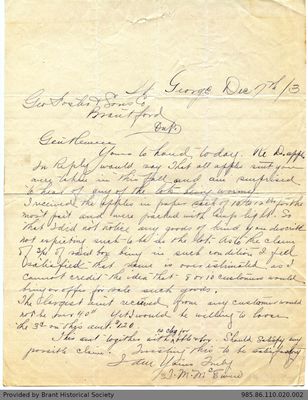 St. George Dec 7th/13
Geo Foster & Sons Co
Brantford
Ont
Gentlemen
Yours to hand today. Re D. apple
In Reply would say that all apples sent you
very like in this fall and am surprised
to hear of any of the lots being wormy.
I received the apples in paper sack of to for the
most part and were packed with lamp light. So
that I did not notice any goods of kind you describe
not expecting such to be in the lots. As to the claim
of of used being in such condition I feel
satisfied that same is over estimated, as I
cannot credit the idea that 8 or 10 customers would
bring or offer for sale such goods.
The largest amt received from any customer would
not be over 40". Yet I would be willing to loose
the 3¢ on this amt. $1.20.
no chg for
This amt together with should satisfy any
possible claim. Trusting this to be satisfactory
I am Yours Truly
J. M. McEwen
Reproduced by Brant Historical Society
985.86.110.020.002